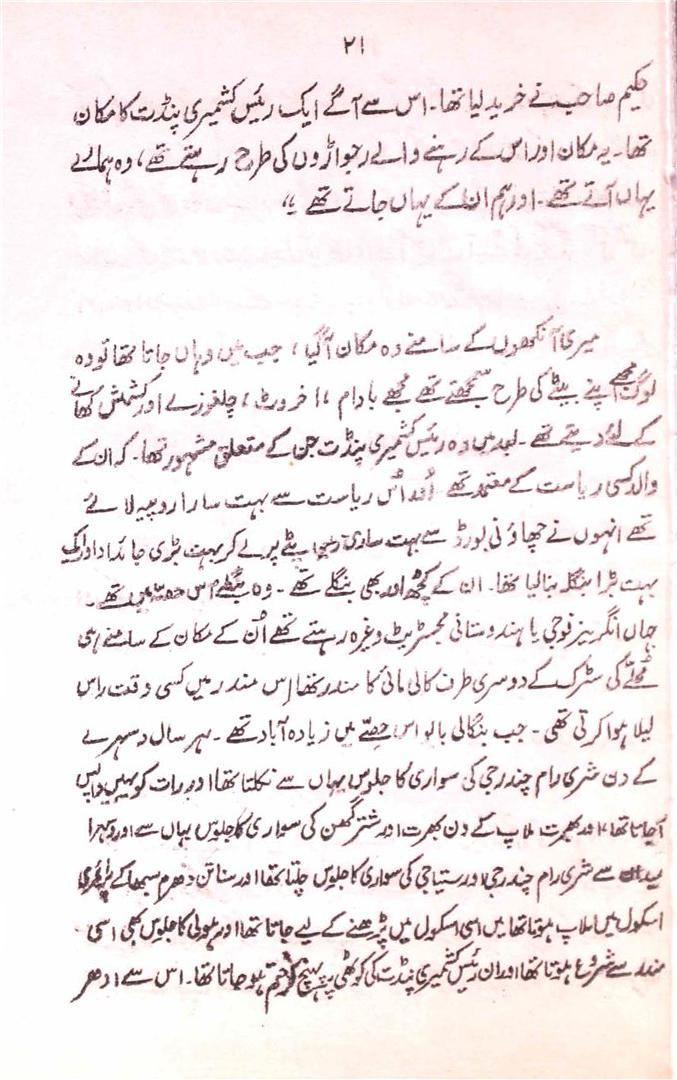 ۲۱
حکیم صاحب نے خرید لیا تھا۔ اس سے آگے ایک رئیس کشمیری پنڈت کا مکان
تھا۔ یہ مکان اور اس کے رہنے والے رجواڑوں کی طرح رہتے تھے، وہ ہمارے
یہاں آتے تھے۔ اور ہم ان کے یہاں جاتے تھے "
میری آنکھوں کے سامنے وہ مکان آگیا، جب میں وہاں جاتا تھا تو وہ
لوگ مجھے اپنے بیٹے کی طرح سمجھتے تھے مجھے بادام، اخروٹ، چلغوزے اور کشمش کھانے
کے لئے دیتے تھے۔ بعد میں وہ رئیس کشمیری پنڈت جن کے متعلق مشہور تھا۔ کہ ان کے
والد کسی ریاست کے معتمد تھے اور اُس ریاست سے بہت سارا روپیہ لائے
تھے انہوں نے چھاؤنی بورڈ سے بہت ساری زمین پٹے پر لے کر بہت بڑی جائداد اور ایک
بہت بڑا بنگلہ بنا لیا تھا۔ ان کے کچھ اور بھی بنگلے تھے۔ وہ بنگلے اُس حصّہ میں تھے۔
جہاں انگریز فوجی یا ہندوستانی مجسٹریٹ وغیرہ رہتے تھے اُن کے مکان کے سامنے ہی
محلے کی سڑک کے دوسری طرف کالی مائی کا مندر تھا اس مندر میں کسی وقت راس
لیلا ہوا کرتی تھی۔ جب بنگالی بابو اس حصّے میں زیادہ آباد تھے۔ ہر سال دسہرے
کے دن شری رام چندر جی کی سواری کا جلوس یہاں سے نکلتا تھا اور رات کو یہیں واپس
آجاتا تھا، اور بھرت ملاپ کے دن بھرت اور شترگھن کی سواری کا جلوس یہاں سے اور دسہرا
میدان سے شری رام چندر جی اور ستیا جی کی سواری کا جلوس چلتا تھا اور سناتن دھرم سبھا کے پرائمری
اسکول میں ملاپ ہوتا تھا میں اسی اسکول میں پڑھنے کے لیے جاتا تھا اور ہولی کا جلوس بھی اسی
مندر سے شروع ہوتا تھا اور ان رئیس کشمیری پنڈت کی کوٹھی پہ پہنچ کر ختم ہو جاتا تھا۔ اس سے ادھر